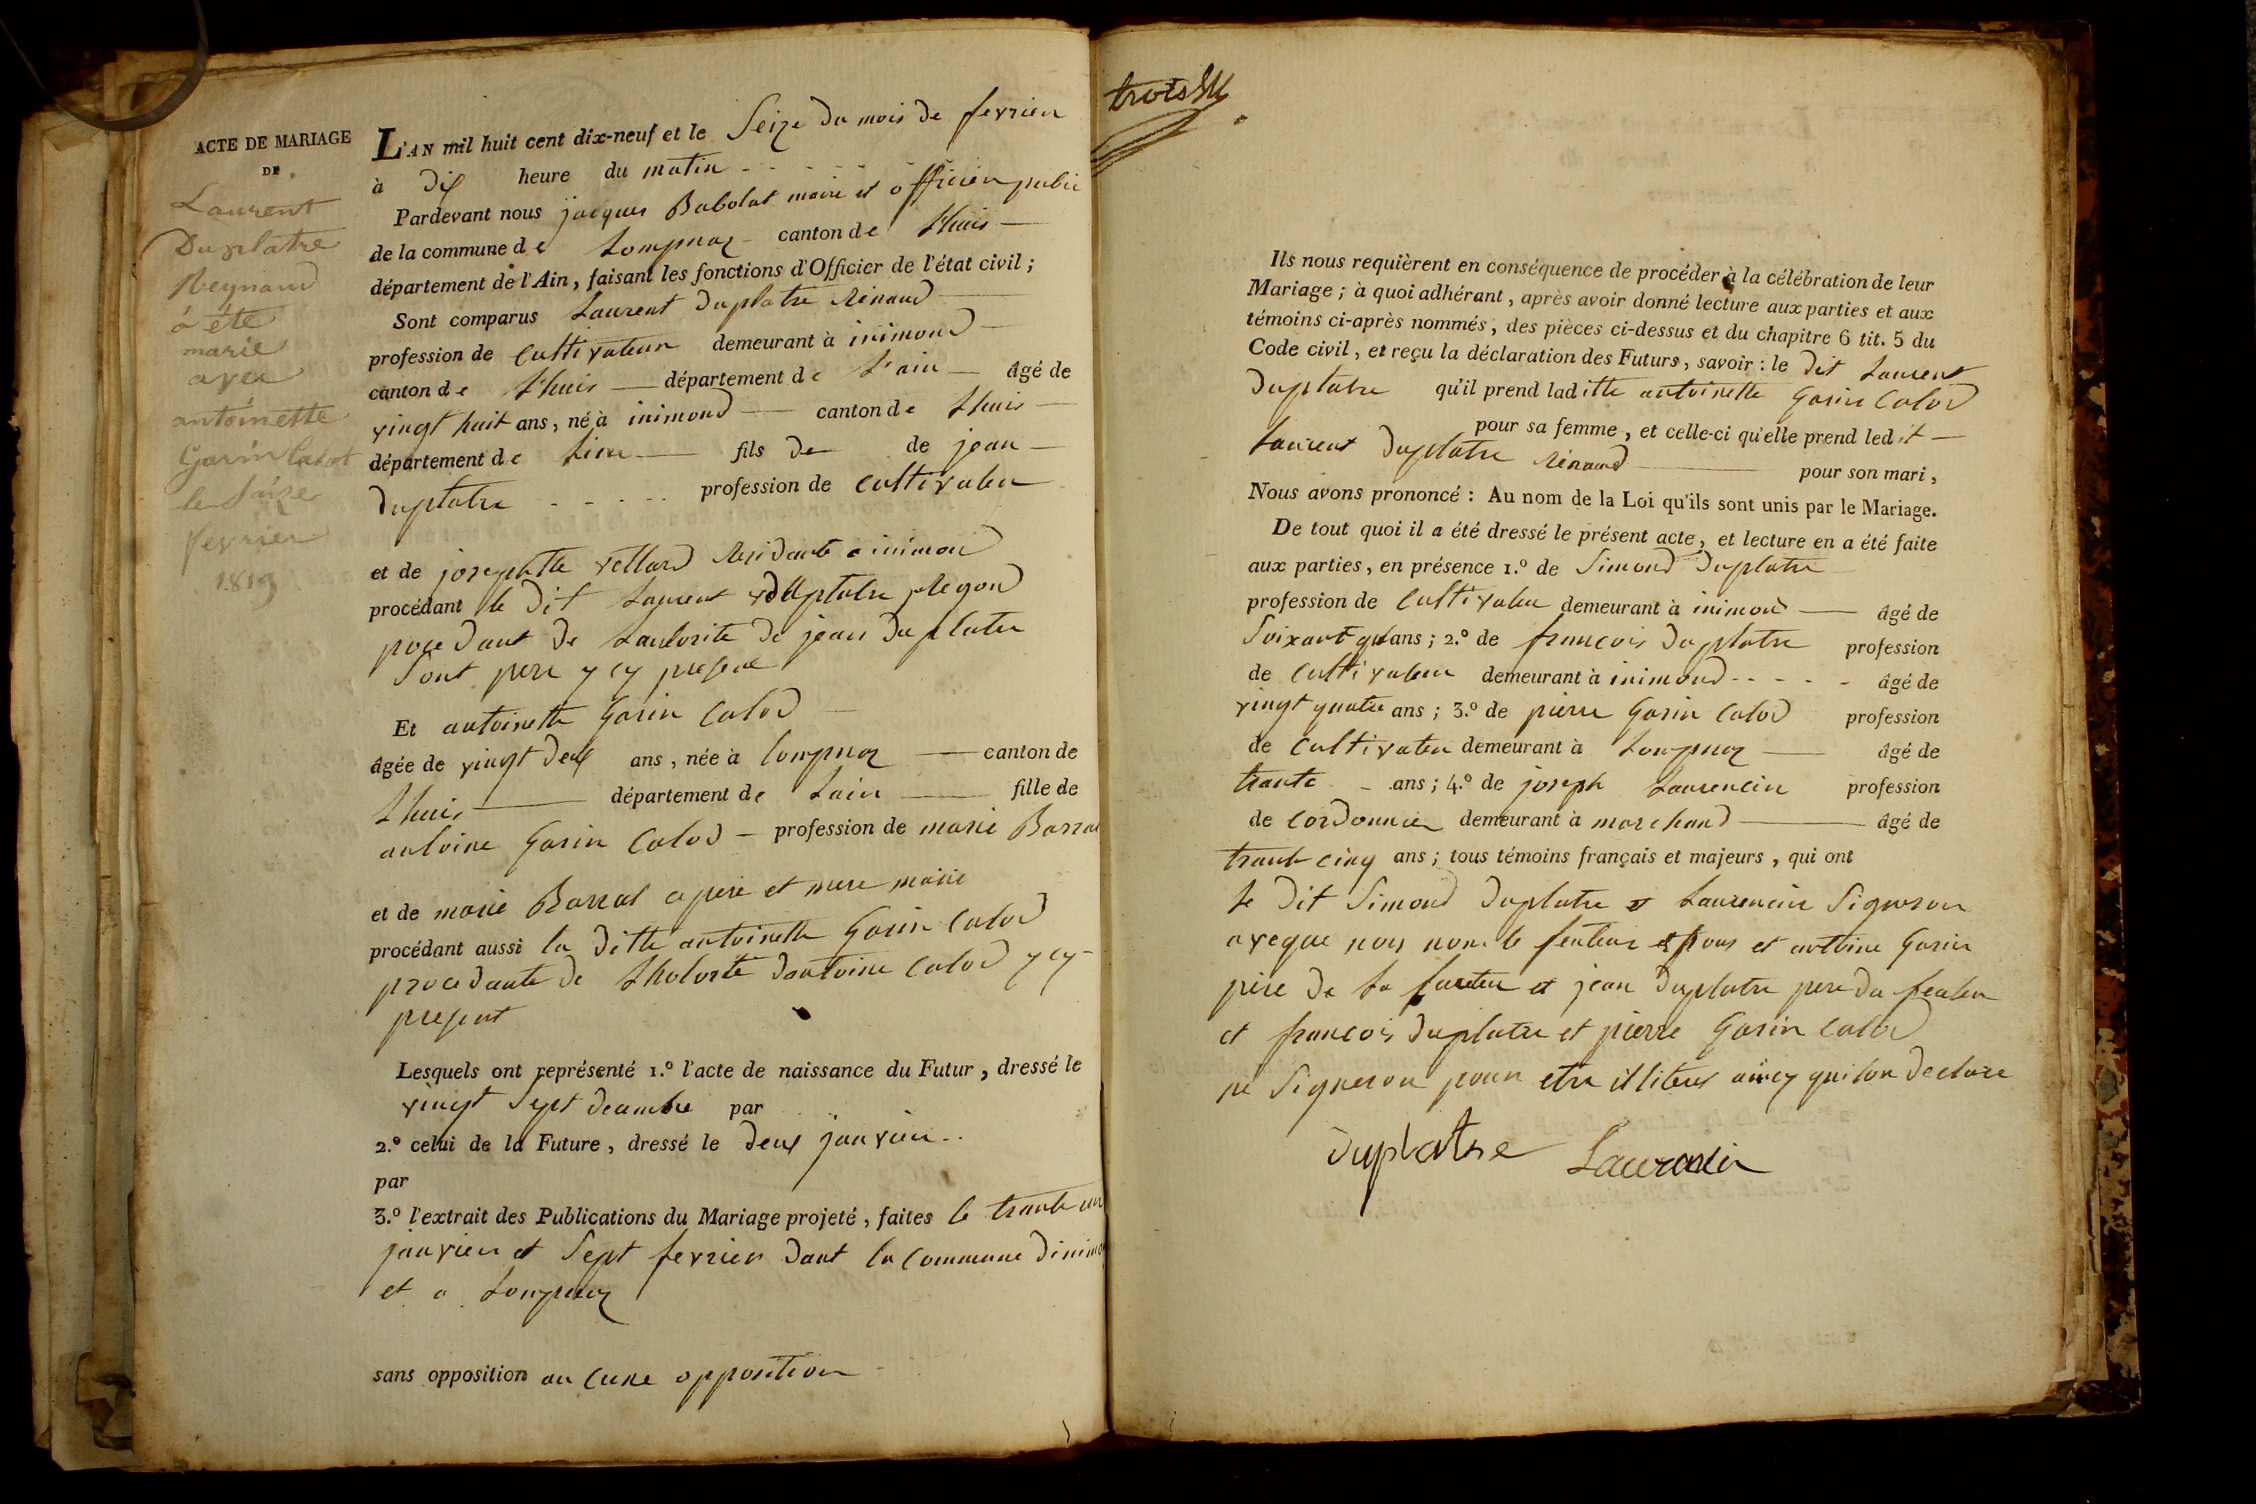 ACTE DE MARIAGE
DE
Laurent
Duplatre
Reynaud
á été
marié
avec
antoinette
Garin Calot
le saize
fevrier
1819
L'AN mil huit cent dix-neuf et le Seize du mois de fevrier
à dix heure du matin
Pardevant nous jacques Babolat maire et officier public
de la commune de Lompnaz canton de Lhuis
département de l'Ain, faisant les fonctions d'Officier de l'état civil ;
Sont comparus Laurent Duplatre Rénaud
profession de Cultivateur demeurant à inimond
canton de Lhuis département de L'ain âgé de
vingt huit ans, né à inimond canton de Lhuis
département de Lain fils de de jean
Duplatre profession de Cultivateu
et de josephtte vettard Residante a inimon
procédant le Dit Laurent Duplatre Regnod
pocedant de Lautorite De jean Duplatre
Sont pere y cy present
Et antoinette Garin Calod
âgée de vingt Deux ans, née à lompnaz canton de
Lhuis département de Lain fille de
antoine Garin Calod profession de marie Barral
et de marie Barral a pere et mere marie
procédant aussi la Ditte antoinette Garin Calod
procedante de Lhotorité Dantoine Calod y cy
present
Lesquels ont représenté 1.º l'acte de naissance du Futur, dressé le
vingt Sept decembre par
2.º celui de la Future, dressé le Deux janvier
par
3.º l'extrait des Publications du Mariage projeté, faites le trante un
janvier et Sept fevrier Dant la Commune Dinimo
et a Lompnaz
sans opposition au Cune opposition
trois
Ils nous requièrent en conséquence de procéder à la célébration de leur
Mariage ; à quoi adhérant, après avoir donné lecture aux parties et aux
témoins ci-après nommés, des pièces ci-dessus et du chapitre 6 tit. 5 du
Code civil, et reçu la déclaration des Futurs, savoir : le Dit Laurent
Duplatre qu'il prend laditte antoinette Garin Calod
pour sa femme, et celle-ci qu'elle prend ledit
Laurent Duplatre Rénaud pour son mari,
Nous avons prononcé : Au nom de la Loi qu'ils sont unis par le Mariage.
De tout quoi il a été dressé le présent acte, et lecture en a été faite
aux parties, en présence 1.º de Simond Duplatre
profession de Cultivateu demeurant à inimon âgé de
Soixant ans ; 2.º de francois Duplatre profession
de Cultivateur demeurant à inimond âgé de
vingt quatre ans ; 3.º de pierre Garin Calod profession
de Cultivateu demeurant à Lompnaz âgé de
trante ans ; 4.º de joseph Laurencin profession
de Cordonnier demeurant à marchand âgé de
trante cinq ans ; tous témoins français et majeurs, qui ont
Le Dit Simond Duplatre et Laurencin Signeron
aveque nou non le feuteur epous et antoine Garin
père De la et jean Duplatre pere Du feuteu
et francois Duplatre et pierre Garin Calod
ne Signeron pour etre illiterés aincy quilon Declare
Duplatre Laurencin